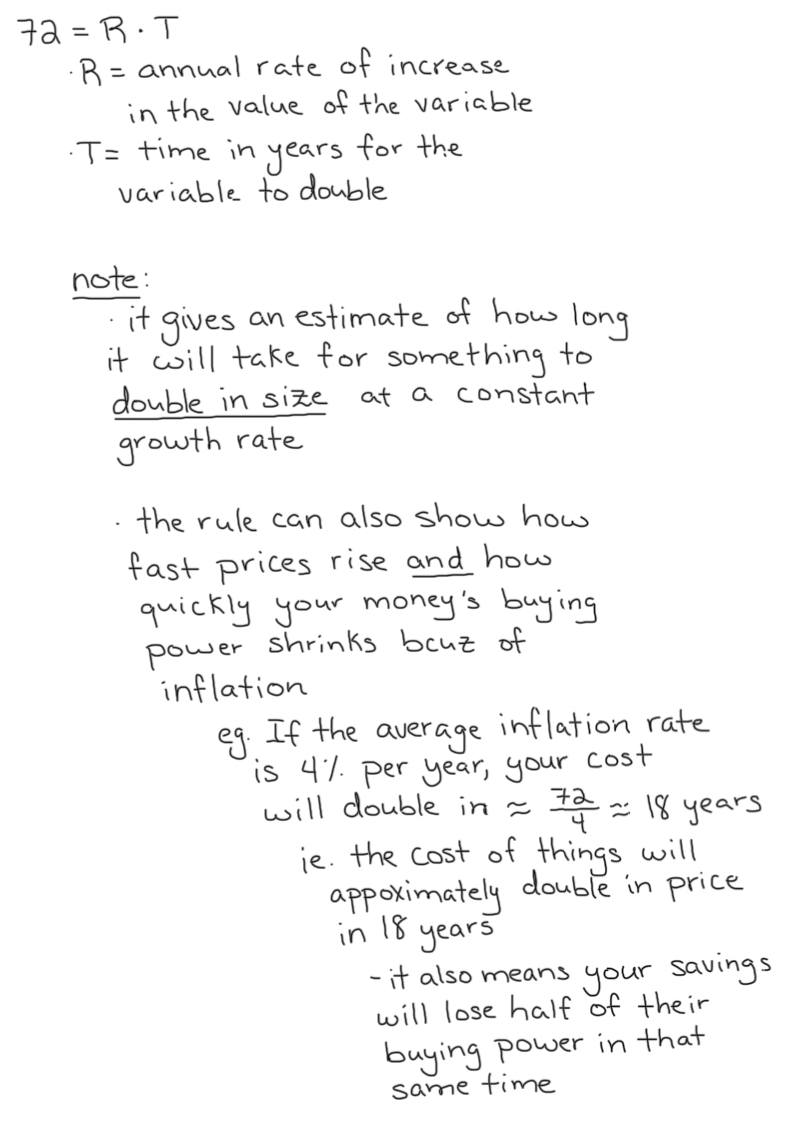 72 = R · T
· R = annual rate of increase
in the value of the variable
· T = time in years for the
variable to double
note:
· it gives an estimate of how long
it will take for something to
double in size at a constant
growth rate
· the rule can also show how
fast prices rise and how
quickly your money's buying
power shrinks bcuz of
inflation
eg. If the average inflation rate
is 4% per year, your cost
will double in ≈ 72/4 ≈ 18 years
ie. the cost of things will
appoximately double in price
in 18 years
- it also means your savings
will lose half of their
buying power in that
same time